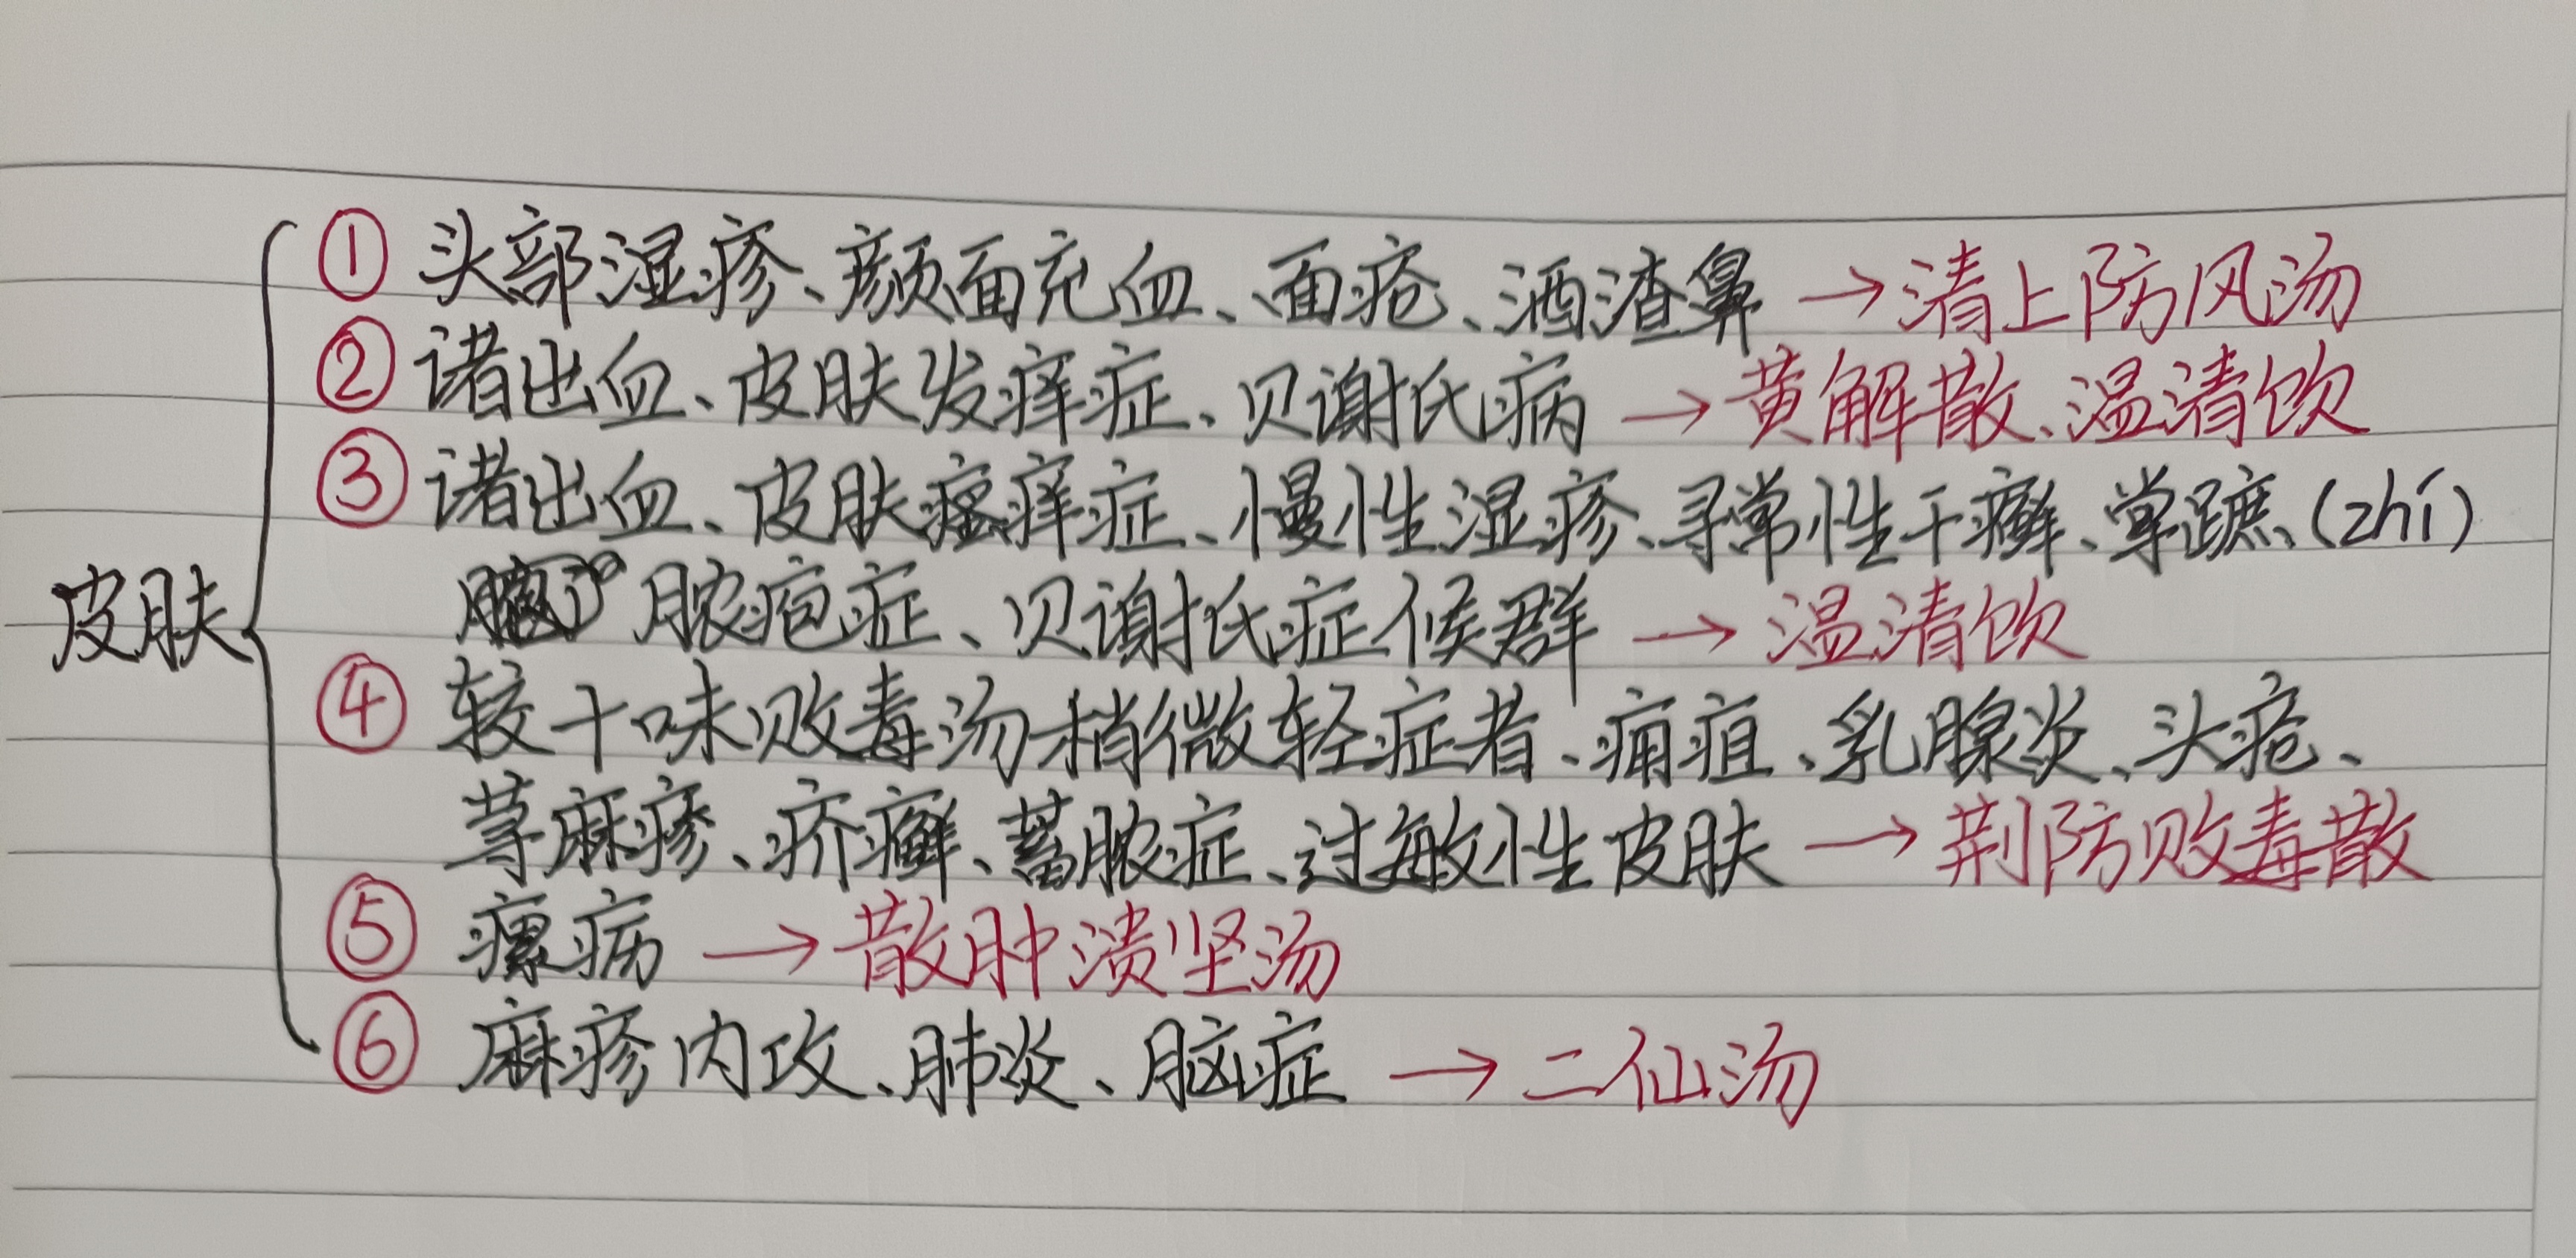 ① 头部湿疹、颜面充血、面疮、酒渣鼻 → 清上防风汤
② 诸出血、皮肤发痒症、贝谢氏病 → 黄解散、温清饮
③ 诸出血、皮肤瘙痒症、慢性湿疹、寻常性干癣、掌蹠、(zhí)
皮肤 脓疱症、贝谢氏症候群 → 温清饮
④ 较十味败毒汤稍微轻症者、痈疽、乳腺炎、头疮、
荨麻疹、疥癣、蓄脓症、过敏性皮肤 → 荆防败毒散
⑤ 瘰病 → 散肿溃坚汤
⑥ 麻疹内攻、肺炎、脑症 → 二仙汤